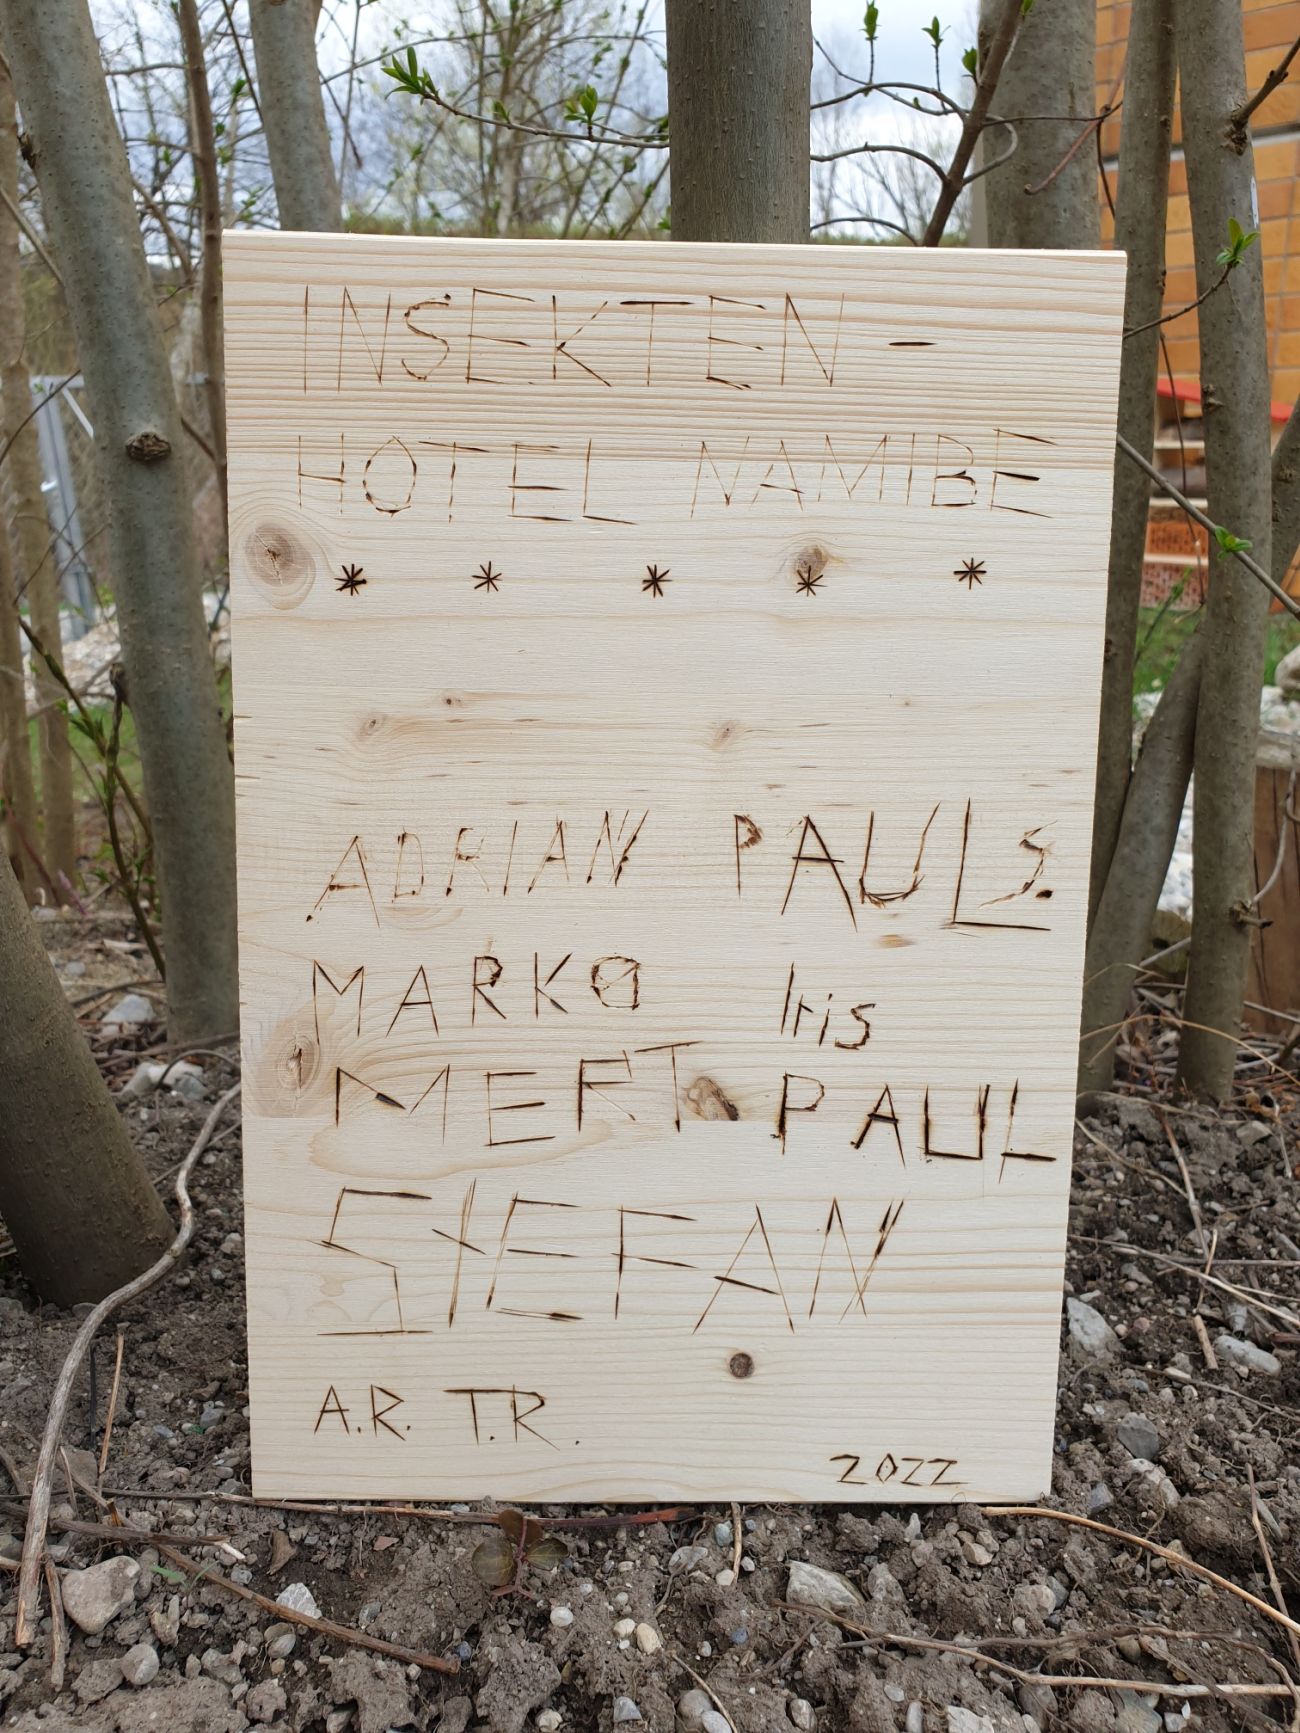 INSEKTEN-
HOTEL NAMIBE
* * * * *
ADRIAN PAUL S.
MARKO Iris
MERT PAUL
STEFAN
A.R. T.R.
2022